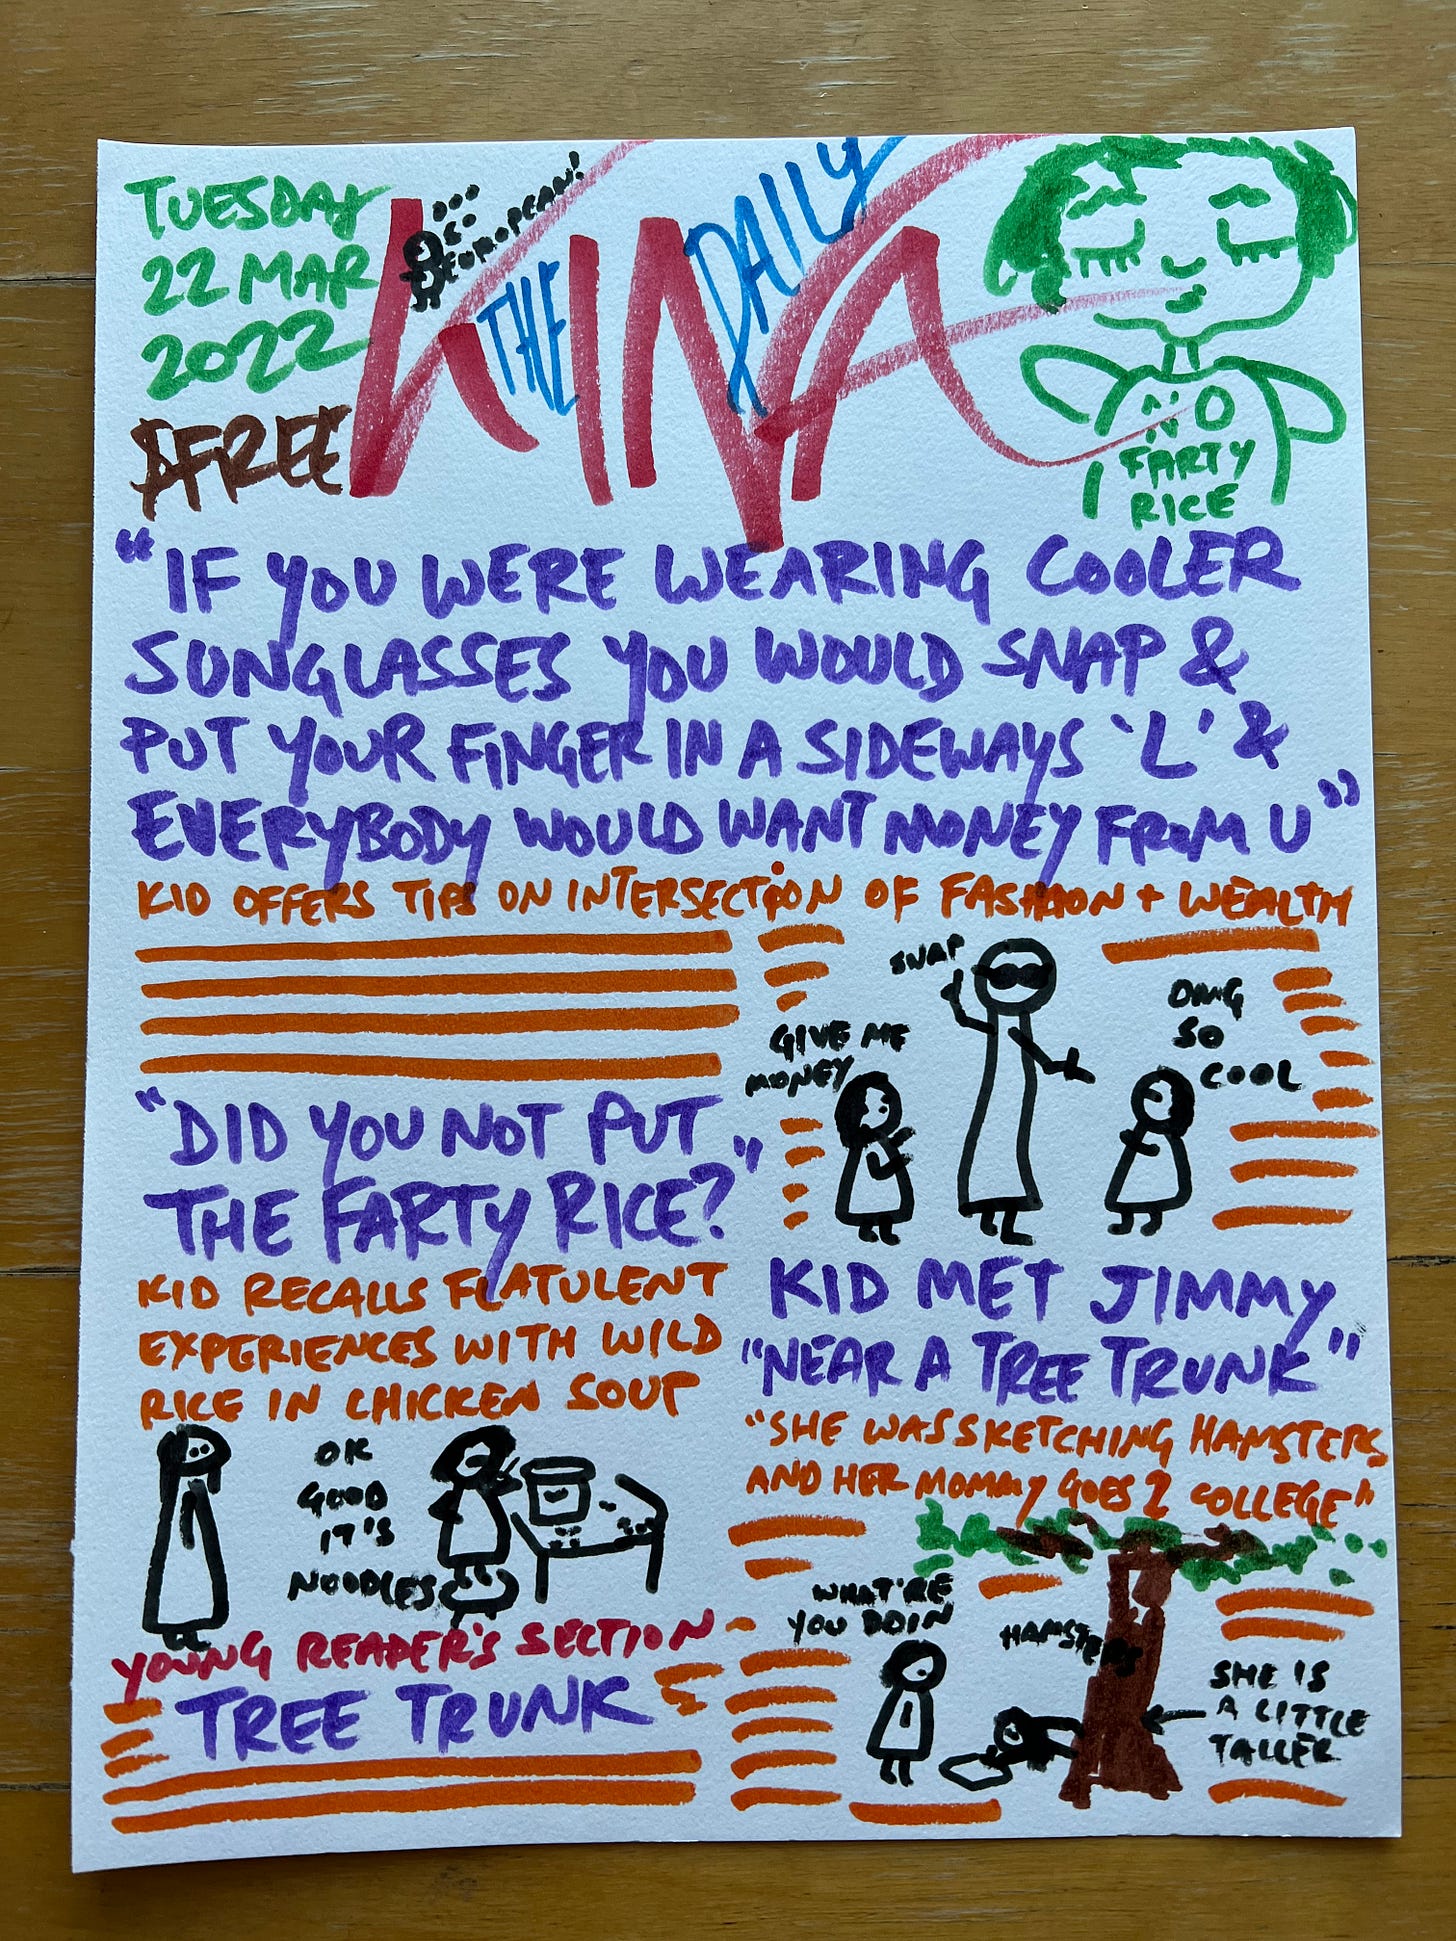 TUESDAY
22 MAR
2022
$FREE
... SO
EUROPEAN!
THE
DAILY
KINA
NO
FARTY
RICE
"IF YOU WERE WEARING COOLER
SUNGLASSES YOU WOULD SNAP &
PUT YOUR FINGER IN A SIDEWAYS 'L' &
EVERYBODY WOULD WANT MONEY FROM U"
KID OFFERS TIPS ON INTERSECTION OF FASHION + WEALTH
SNAP
GIVE ME
MONEY
OMG
SO
COOL
"DID YOU NOT PUT
THE FARTY RICE?"
KID RECALLS FLATULENT
EXPERIENCES WITH WILD
RICE IN CHICKEN SOUP
OK
GOOD
IT'S
NOODLES
KID MET JIMMY
"NEAR A TREE TRUNK"
"SHE WAS SKETCHING HAMSTERS
AND HER MOMMY GOES 2 COLLEGE"
WHAT'RE
YOU DOIN
HAMSTERS
SHE IS
A LITTLE
TALLER
YOUNG READER'S SECTION
TREE TRUNK